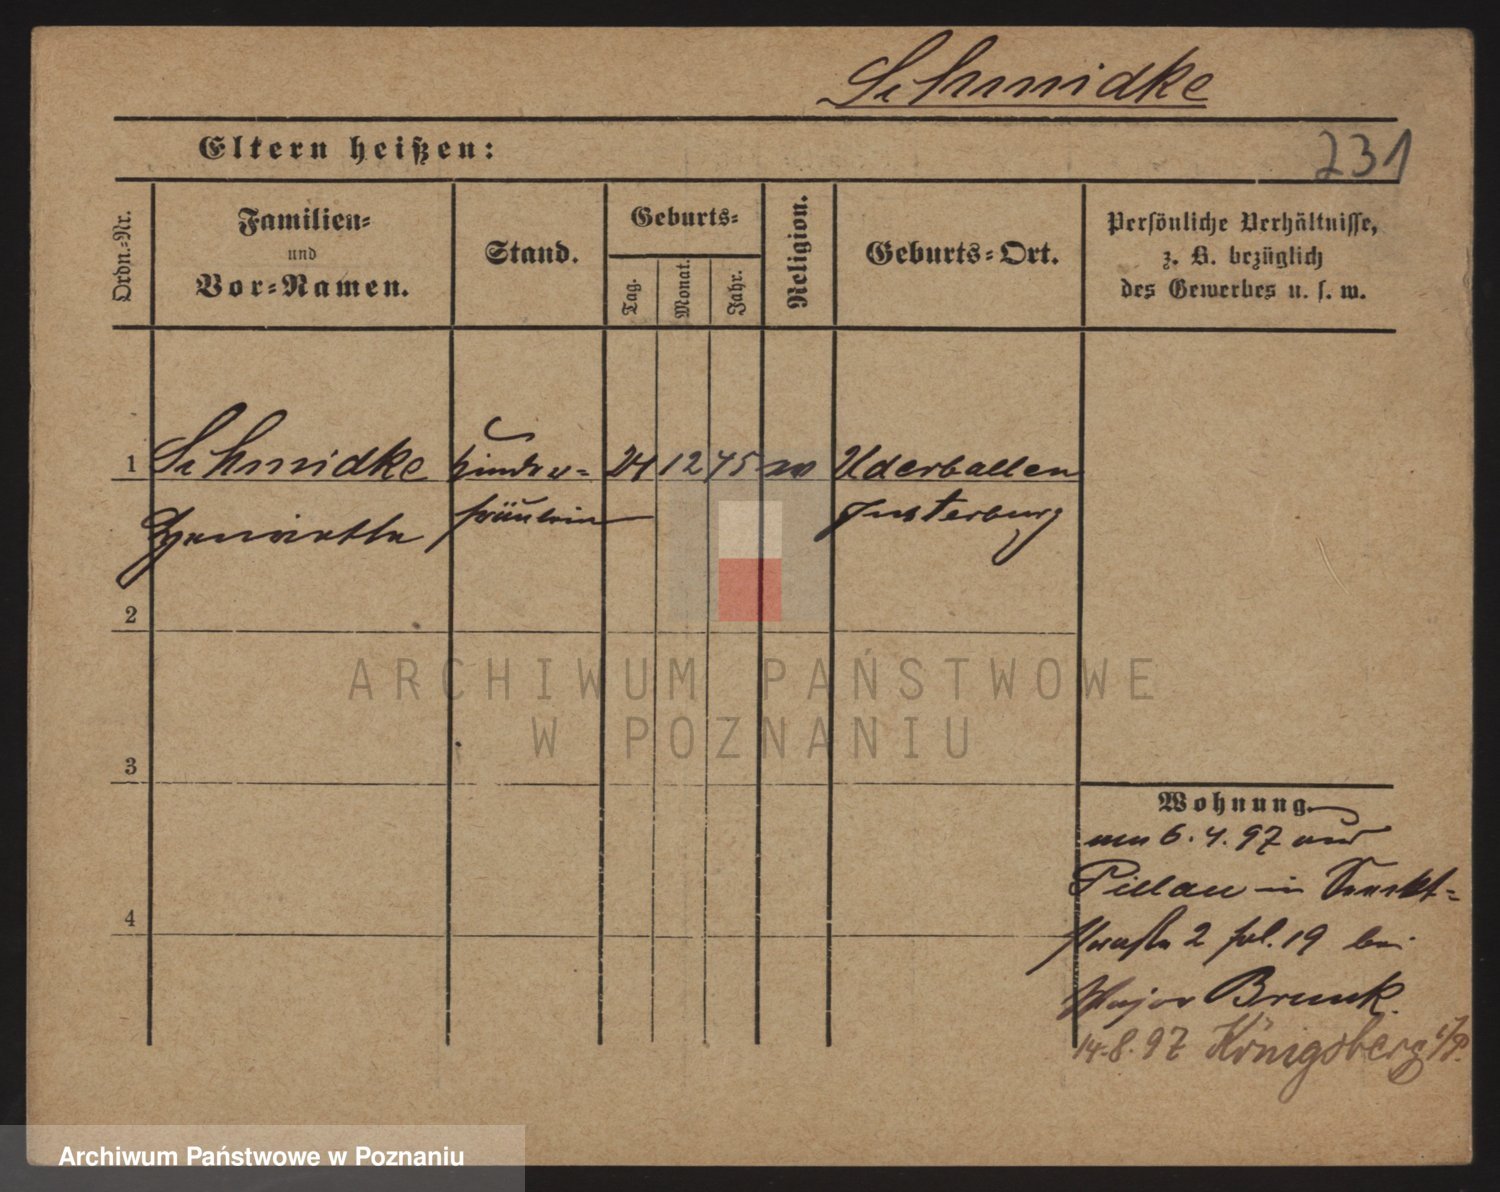 Schmidke
Eltern heißen:
231
Ordn.-Nr.
Familien-
und
Vor-Namen.
Stand.
Geburts-
Tag.
Monat.
Jahr.
Religion.
Geburts-Ort.
Persönliche Verhältnisse,
z. B. bezüglich
des Gewerbes u. s. w.
1 Schmidke Kinder- 24 12 75 ev Uderballen
Henriette fräulein Insterburg
2
ARCHIWUM PAŃSTWOWE
W POZNANIU
3
Wohnung.
am 6.4.97 aus
Pillau in
straße 2 prl. 19 bei
Major Brunk.
14.8.97 Königsberg i/P.
4
Archiwum Państwowe w Poznaniu